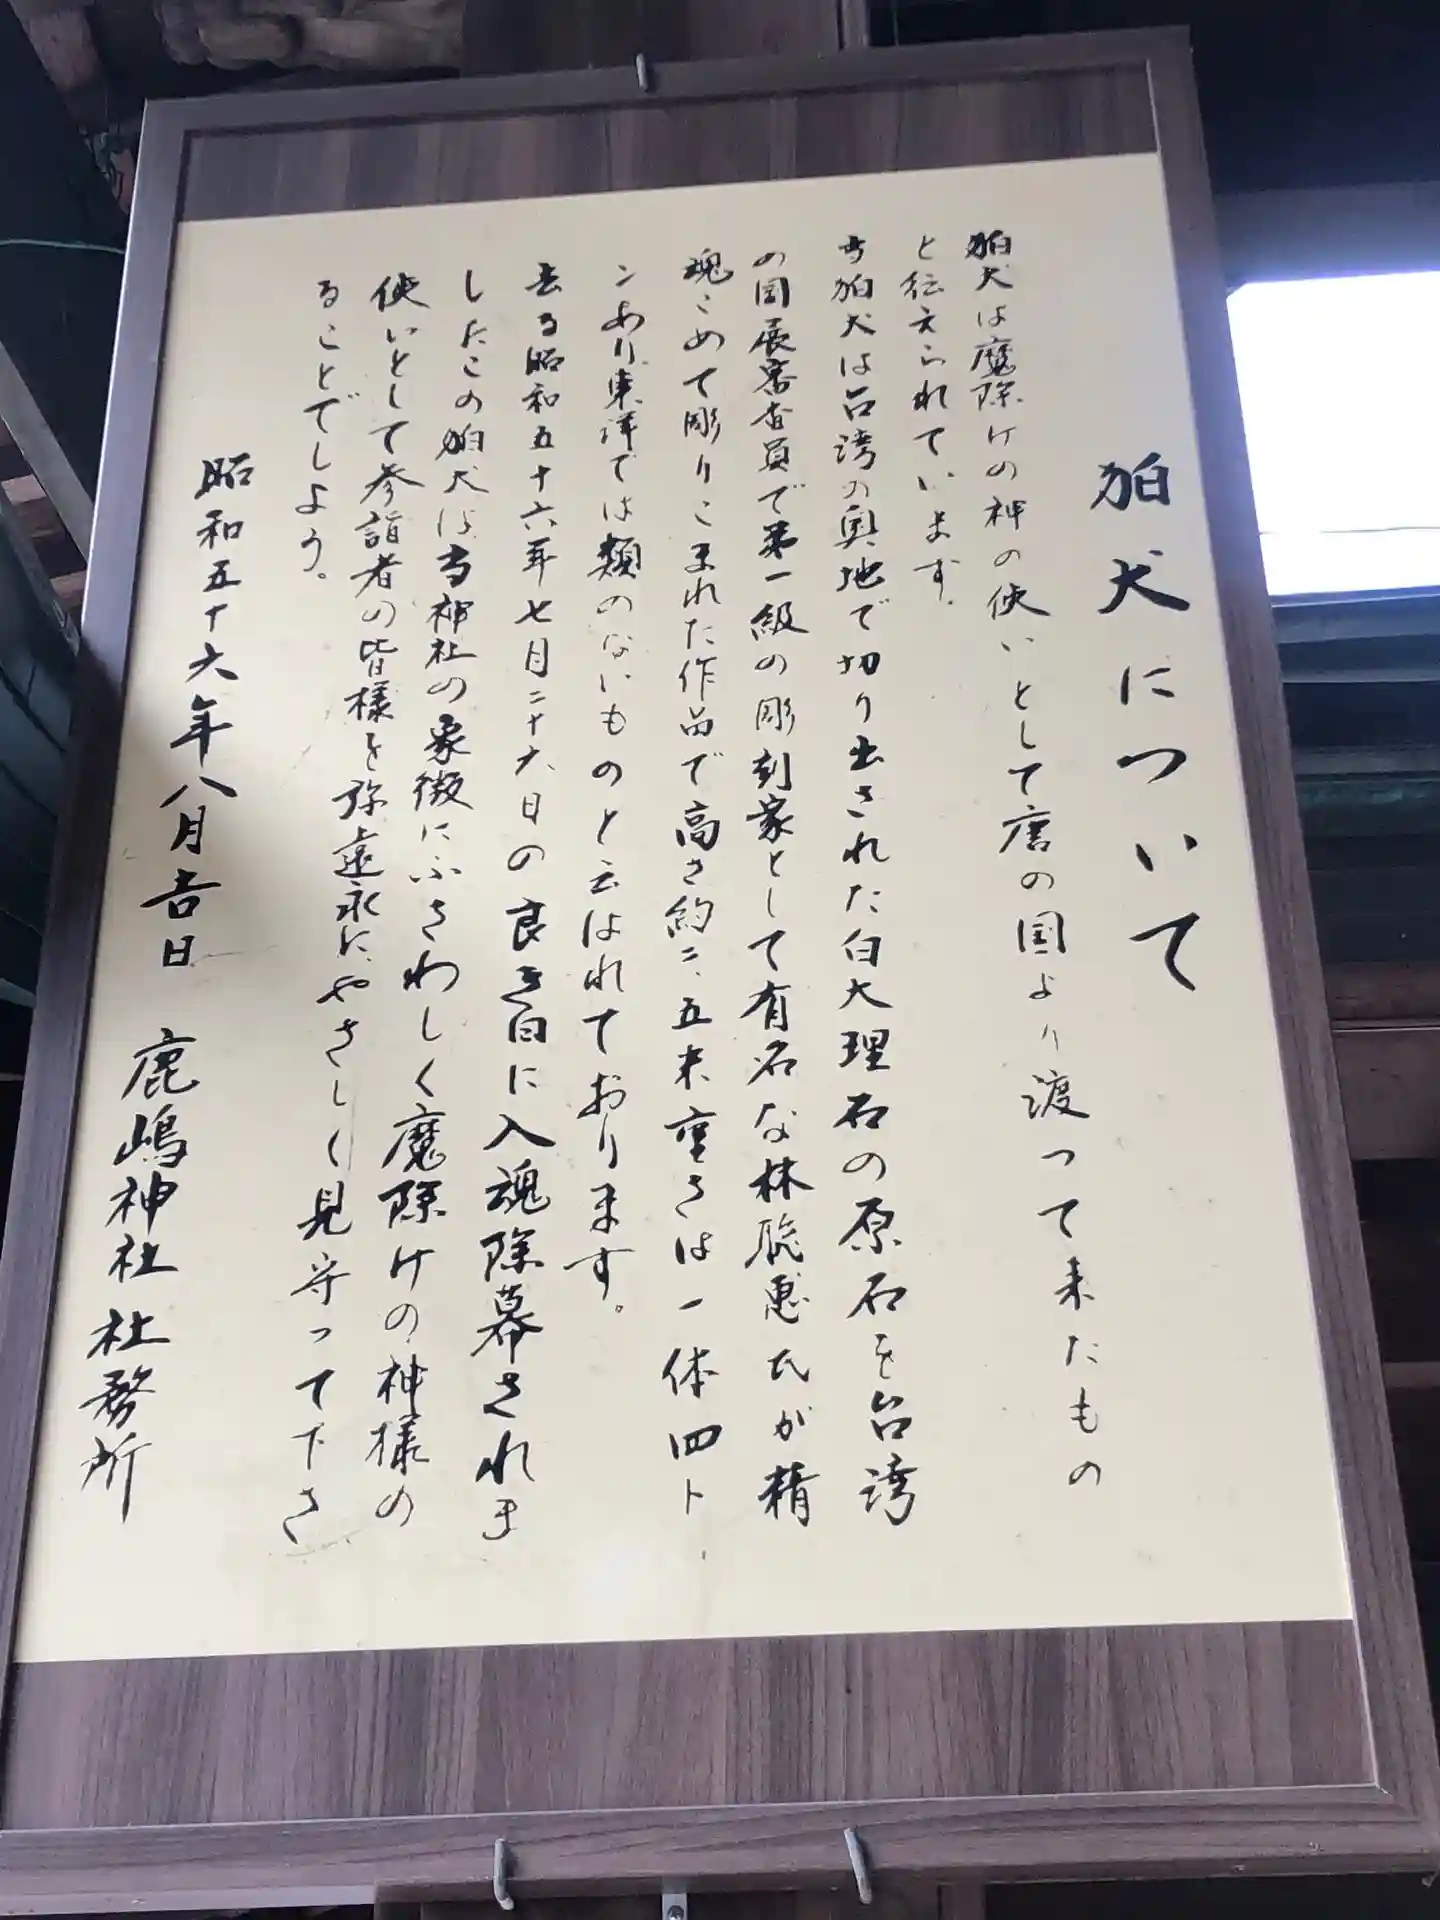 狛犬について
狛犬は魔除けの神の使いとして唐の国より渡って来たもの
と伝えられています。
当狛犬は台湾の奥地で切り出された白大理石の原石を台湾
の国展審査員で第一級の彫刻家として有名な林聡惠氏が精
魂こめて彫りこまれた作品で高さ約二、五米、重さは一体四ト
ンあり東洋では類のないものと云はれております。
去る昭和五十六年七月二十六日の良き日に入魂除幕されま
したこの狛犬は当神社の象徴にふさわしく魔除けの神様の
使いとして参詣者の皆様を弥遠永にやさしく見守って下さ
ることでしょう。
昭和五十六年八月吉日 鹿嶋神社 社務所